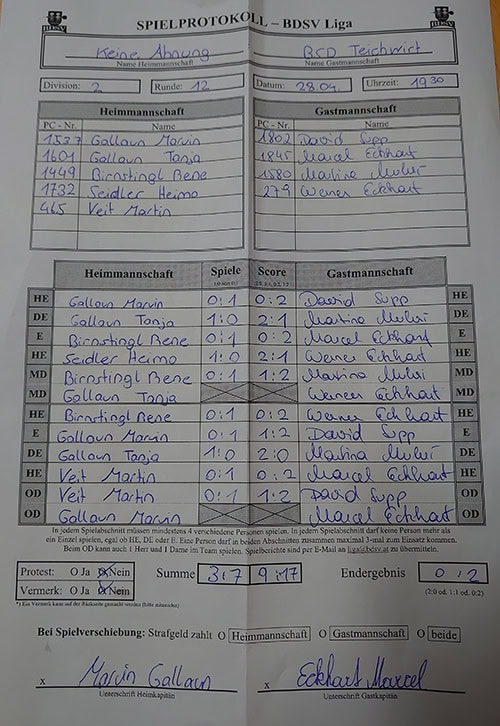 SPIELPROTOKOLL – BDSV Liga
BDSV BDSV
Keine Ahnung BCD Teichwirt
Name Heimmannschaft Name Gastmannschaft
Division: 2 Runde: 12 Datum: 28.04. Uhrzeit: 19 30
Heimmannschaft Gastmannschaft
PC - Nr. Name PC - Nr. Name
1537 Gallaun Marvin 1802 David Supp
1601 Gallaun Tanja 1845 Marcel Eckhart
1449 Birnstingl Rene 1580 Martina
1732 Seidler Heimo 279 Werner Eckhart
465 Veit Martin
Heimmannschaft Spiele Score Gastmannschaft
HE Gallaun Marvin 0:1 0:2 David Supp HE
DE Gallaun Tanja 1:0 2:1 Martina DE
E Birnstingl Rene 0:1 0:2 Marcel Eckhart E
HE Seidler Heimo 1:0 2:1 Werner Eckhart HE
MD Birnstingl Rene 0:1 1:2 Martina MD
MD Gallaun Tanja Werner Eckhart MD
HE Birnstingl Rene 0:1 0:2 Werner Eckhart HE
E Gallaun Marvin 0:1 1:2 David Supp E
DE Gallaun Tanja 1:0 2:0 Martina DE
HE Veit Martin 0:1 0:2 Marcel Eckhart HE
OD Veit Martin 0:1 1:2 David Supp OD
OD Gallaun Marvin Marcel Eckhart OD
In jedem Spielabschnitt müssen mindestens 4 verschiedene Personen spielen. In jedem Spielabschnitt darf keine Person mehr als
ein Einzel spielen, egal ob HE, DE oder E. Eine Person darf in beiden Abschnitten zusammen maximal 3-mal zum Einsatz kommen.
Beim OD kann auch 1 Herr und 1 Dame im Team spielen. Spielberichte sind per E-Mail an liga@bdsv.at zu übermitteln.
Protest: O Ja O Nein Summe 3:7 9:17 Endergebnis 0:2
Vermerk: O Ja O Nein (2:0 od. 1:1 od. 0:2)
*) Ein Vermerk kann auf der Rückseite gemacht werden (bitte ankreuzen)
Bei Spielverschiebung: Strafgeld zahlt O Heimmannschaft O Gastmannschaft O beide
x Marvin Gallaun x Eckhart Marcel
Unterschrift Heimkapitän Unterschrift Gastkapitän